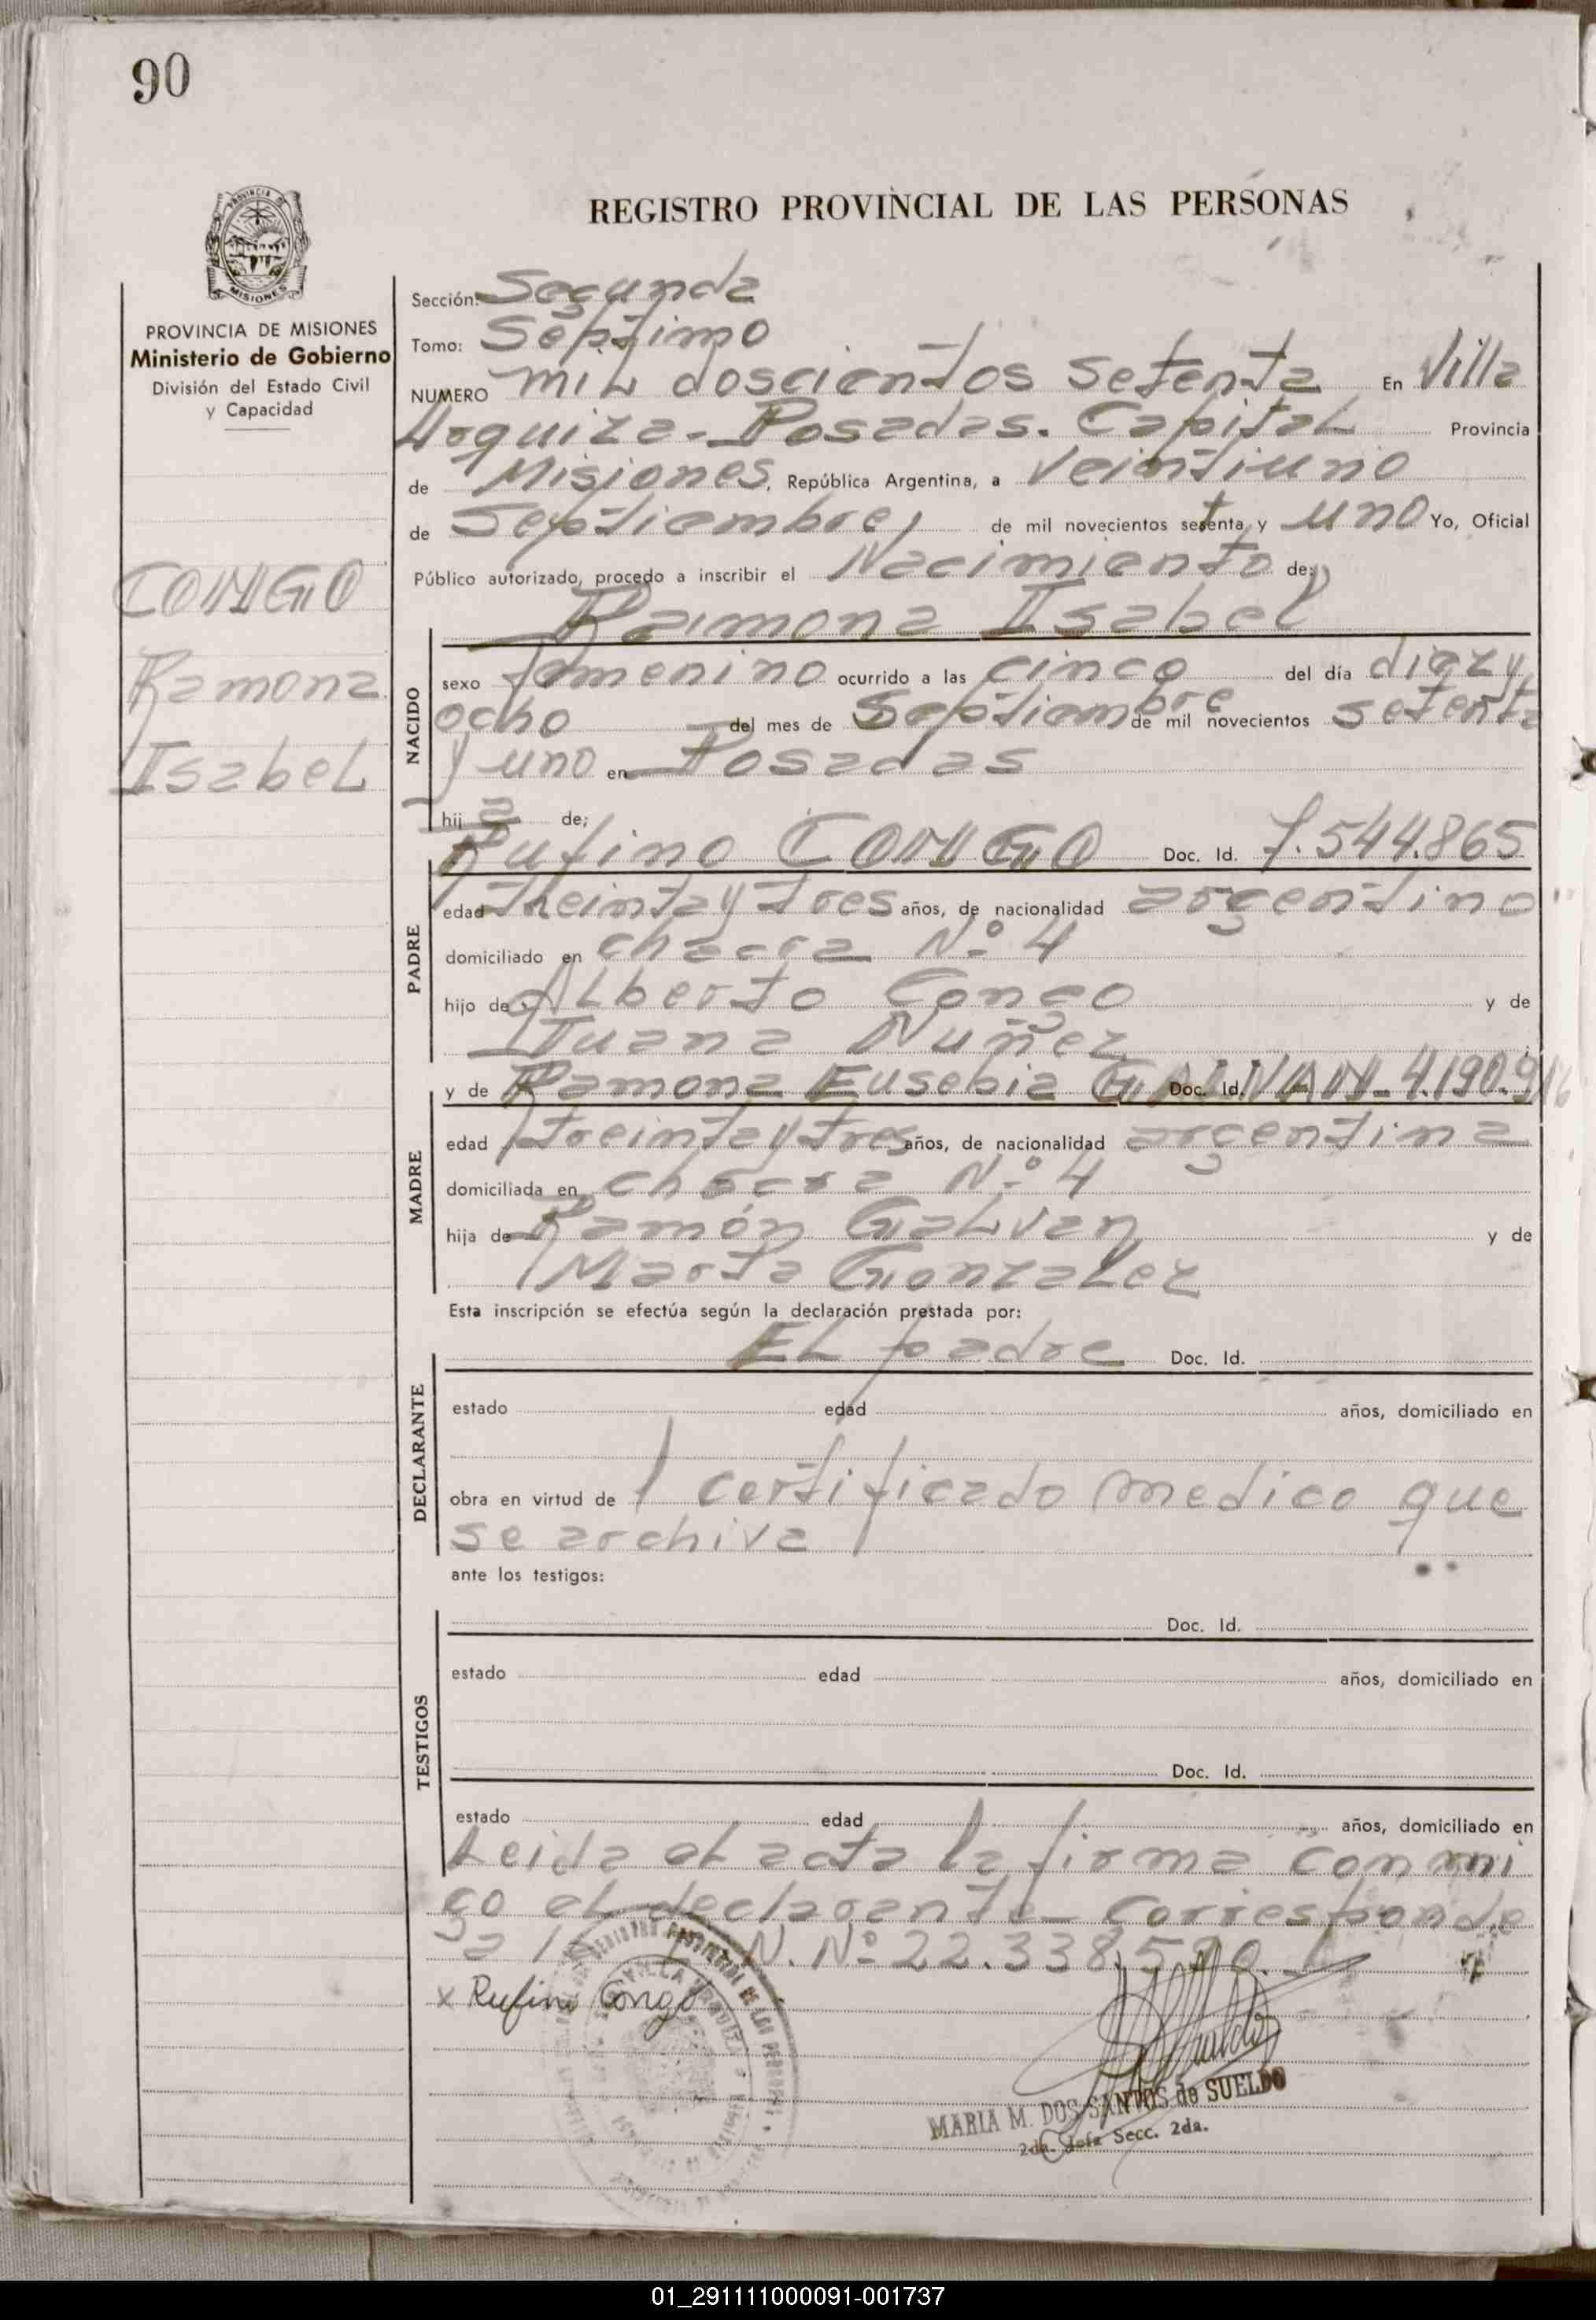 90
REGISTRO PROVINCIAL DE LAS PERSONAS
PROVINCIA DE MISIONES
Ministerio de Gobierno
División del Estado Civil
y Capacidad
CONGO
Ramona
Isabel
Sección: Segunda
Tomo: Séptimo
NUMERO mil doscientos setenta En Villa
Urquiza - Posadas. Capital Provincia
de Misiones, República Argentina, a veintiuno
de Septiembre, de mil novecientos setenta y uno Yo, Oficial
Público autorizado, procedo a inscribir el Nacimiento de:
Ramona Isabel
NACIDO
sexo femenino ocurrido a las cinco del día diez y
ocho del mes de Septiembre de mil novecientos setenta
y uno en Posadas
hija de;
Rufino CONGO Doc. Id. 7.544.865
PADRE
edad treinta y tres años, de nacionalidad argentino
domiciliado en chacra Nº 4
hijo de Alberto Congo y de
Juana Nuñez
y de Ramona Eusebia GALVAN - Doc. Id. 4.190.916
MADRE
edad treinta y tres años, de nacionalidad argentina
domiciliada en chacra Nº 4
hija de Ramón Galvan y de
Marta Gonzalez
Esta inscripción se efectúa según la declaración prestada por:
El padre Doc. Id.
DECLARANTE
estado edad años, domiciliado en
obra en virtud de 1 certificado medico que
se archiva
ante los testigos:
Doc. Id.
TESTIGOS
estado edad años, domiciliado en
Doc. Id.
estado edad años, domiciliado en
Leida el acta la firma conmi
go el declarante - Corresponde
a N. Nº 22.338.5
x Rufino Congo
MARIA M. DOS SANTOS de SUELDO
2da. Jefa Secc. 2da.
01_291111000091-001737